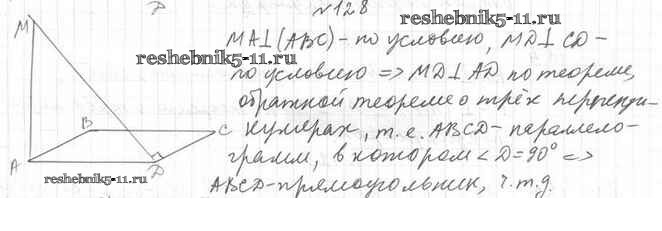 №128
reshebnik5-11.ru
MA⊥(ABC) - по условию, MD⊥CD -
по условию => MD⊥AD по теореме,
обратной теореме о трёх перпенди-
кулярах, т.е. ABCD - параллело-
грамм, в котором <D=90° =>
ABCD - прямоугольник, ч.т.д.
M
B
C
A
D
reshebnik5-11.ru